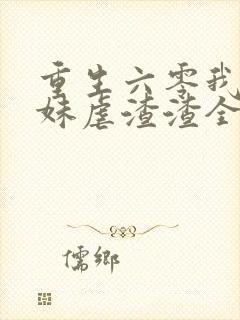 重生六零我
妹虐渣渣全
儒乡